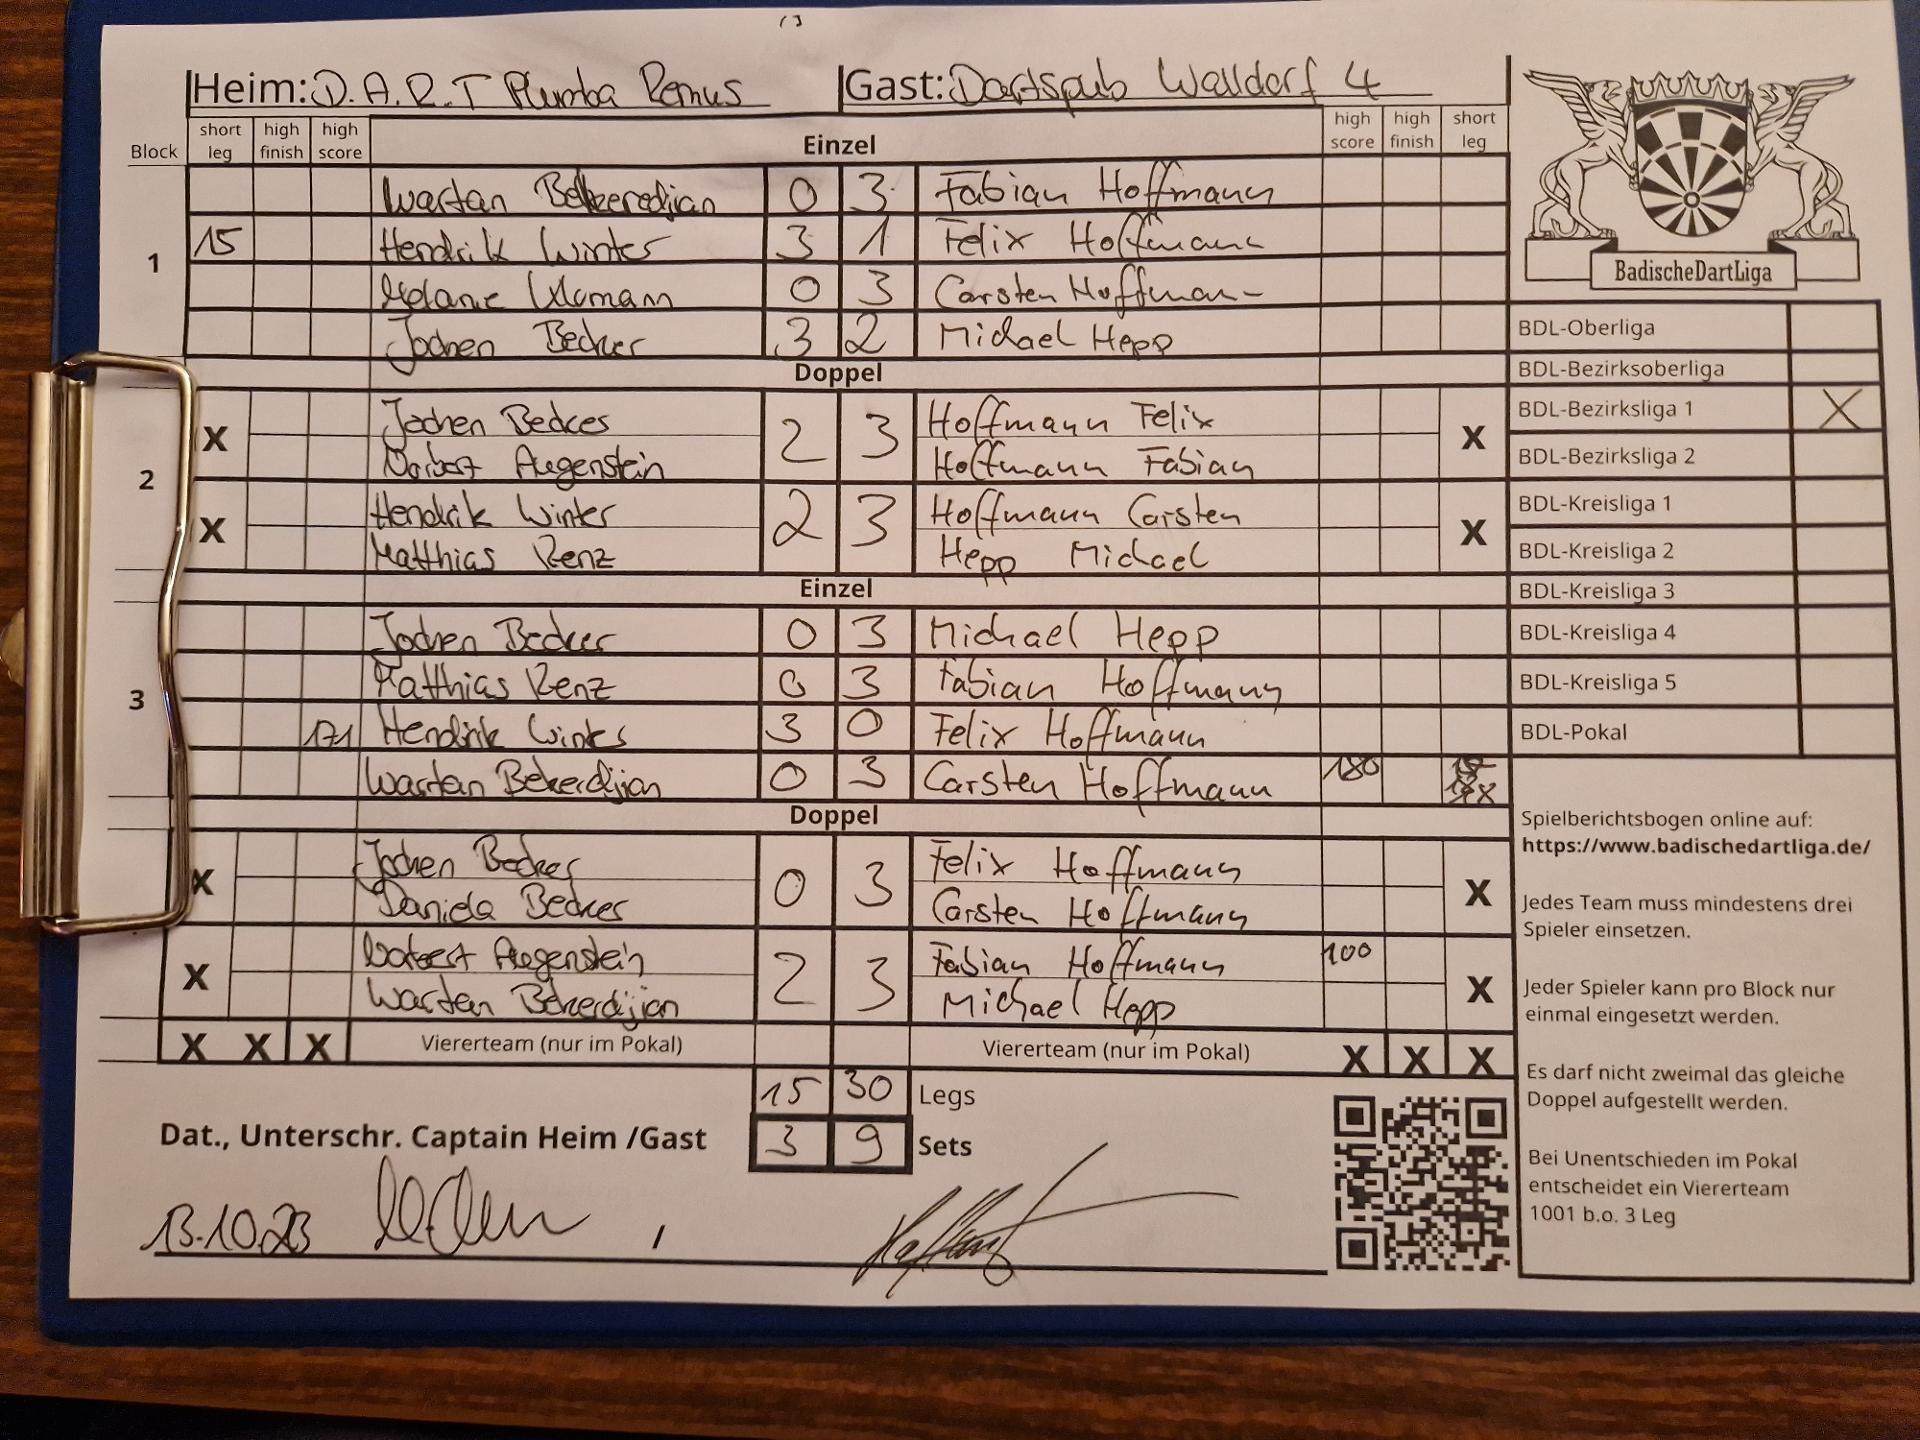 Heim: D.A.R.T Plumba Remus Gast: Dartspub Walldorf 4
Block short leg high finish high score Einzel high score high finish short leg
1
Wartan Bekeredjian 0 3 Fabian Hoffmann
15 Hendrik Winter 3 1 Felix Hoffmann
Melanie 0 3 Carsten Hoffmann
Jochen Becker 3 2 Michael Hepp
Doppel
2
X Jochen Becker 2 3 Hoffmann Felix X
Norbert Augenstein Hoffmann Fabian
X Hendrik Winter 2 3 Hoffmann Carsten X
Matthias Renz Hepp Michael
Einzel
3
Jochen Becker 0 3 Michael Hepp
Matthias Renz 0 3 Fabian Hoffmann
171 Hendrik Winter 3 0 Felix Hoffmann
Wartan Bekerdjian 0 3 Carsten Hoffmann 180
Doppel
X Jochen Becker 0 3 Felix Hoffmann X
Daniela Becker Carsten Hoffmann
X Norbert Augenstein 2 3 Fabian Hoffmann 100 X
Wartan Bekerdjian Michael Hepp
X X X Viererteam (nur im Pokal) Viererteam (nur im Pokal) X X X
15 30 Legs
Dat., Unterschr. Captain Heim /Gast 3 9 Sets
13.10.23
BadischeDartLiga
BDL-Oberliga
BDL-Bezirksoberliga
BDL-Bezirksliga 1 X
BDL-Bezirksliga 2
BDL-Kreisliga 1
BDL-Kreisliga 2
BDL-Kreisliga 3
BDL-Kreisliga 4
BDL-Kreisliga 5
BDL-Pokal
Spielberichtsbogen online auf:
https://www.badischedartliga.de/
Jedes Team muss mindestens drei
Spieler einsetzen.
Jeder Spieler kann pro Block nur
einmal eingesetzt werden.
Es darf nicht zweimal das gleiche
Doppel aufgestellt werden.
Bei Unentschieden im Pokal
entscheidet ein Viererteam
1001 b.o. 3 Leg